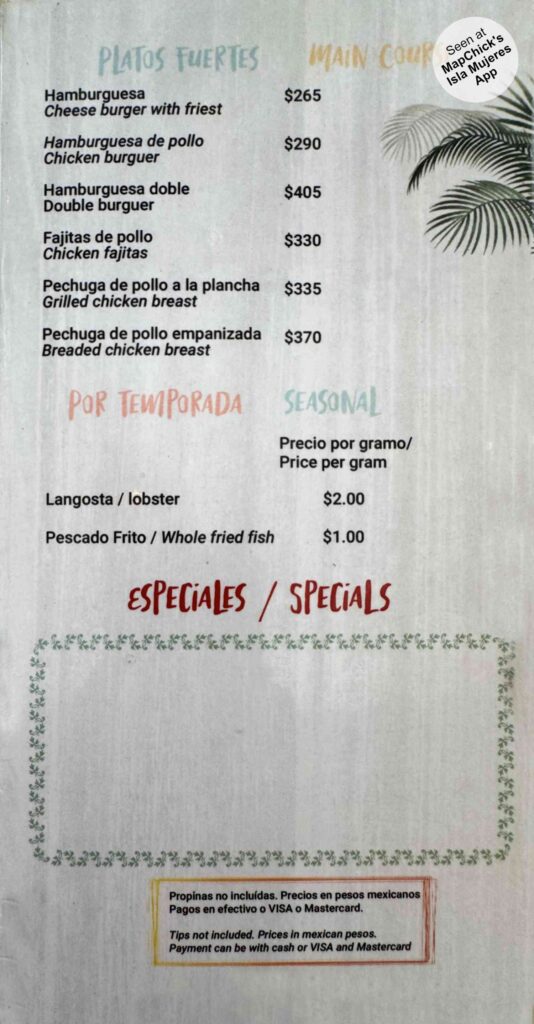 PLATOS FUERTES MAIN COUR
Seen at
MapChick's
Isla Mujeres
App
Hamburguesa $265
Cheese burger with friest
Hamburguesa de pollo $290
Chicken burguer
Hamburguesa doble $405
Double burguer
Fajitas de pollo $330
Chicken fajitas
Pechuga de pollo a la plancha $335
Grilled chicken breast
Pechuga de pollo empanizada $370
Breaded chicken breast
POR TEMPORADA SEASONAL
Precio por gramo/
Price per gram
Langosta / lobster $2.00
Pescado Frito / Whole fried fish $1.00
ESPECIALES / SPECIALS
Propinas no incluídas. Precios en pesos mexicanos
Pagos en efectivo o VISA o Mastercard.
Tips not included. Prices in mexican pesos.
Payment can be with cash or VISA and Mastercard